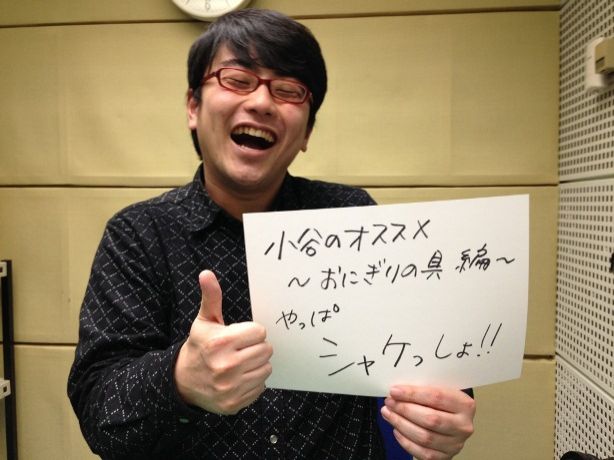 小谷のオススメ
～おにぎりの具 編～
やっぱ
シャケっしょ!!